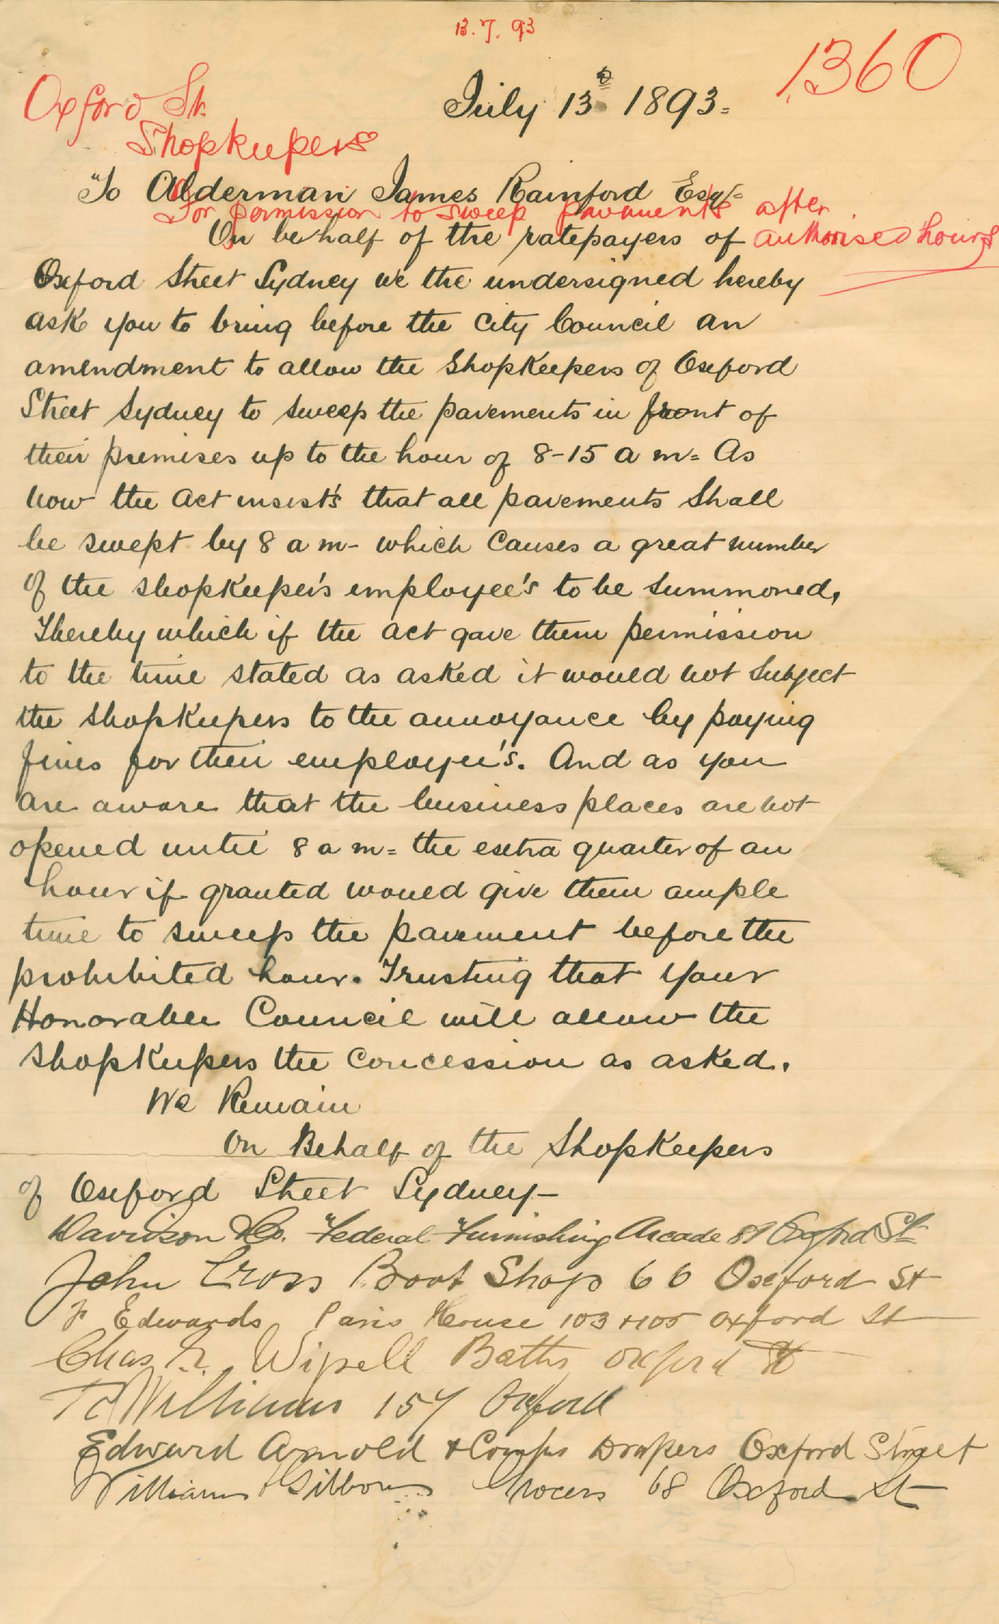 13.7.93
1360
Oxford St.
Shopkeepers
July 13th 1893.
To Alderman James Rainford Esq.
For permission to sweep pavements after
authorised hours
On behalf of the ratepayers of
Oxford Street Sydney we the undersigned hereby
ask you to bring before the City Council an
amendment to allow the ShopKeepers of Oxford
Street Sydney to sweep the pavements in front of
their premises up to the hour of 8-15 a m= As
now the act insist's that all pavements Shall
be swept by 8 a m- which causes a great number
of the shopkeeper's employee's to be summoned,
Thereby which if the act gave them permission
to the time stated as asked it would not subject
the shopkeepers to the annoyance by paying
fines for their employee's. And as you
are aware that the business places are not
opened until 8 a m= the extra quarter of an
hour if granted would give them ample
time to sweep the pavement before the
prohibited hour. Trusting that your
Honorable Council will allow the
shopKeepers the concession as asked.
We Remain
On Behalf of the ShopKeepers
of Oxford Street Sydney-
Davidson & Co. Federal Furnishing Arcade 89 Oxford St
John Cross Boot Shop 66 Oxford St
F Edwards Paris House 103 + 105 Oxford St
Chas. Wipell Baths Oxford St
Williams 157 Oxford
Edward Arnold & Comps Drapers Oxford Street
William Gibbons Grocers 68 Oxford St